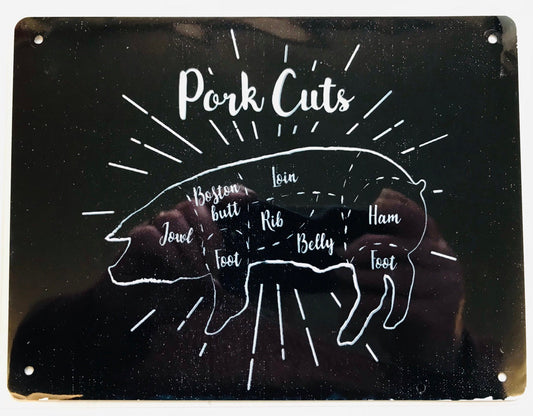 Pork Cuts
Loin
Boston
butt
Rib
Ham
Jowl
Belly
Foot
Foot